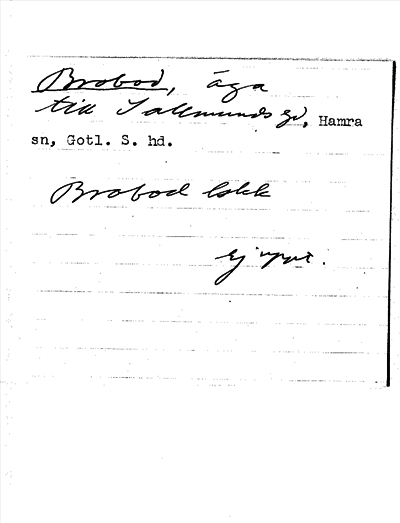 Brobod, äga
till Salmunds gd, Hamra
sn, Gotl. S. hd.
Brobod
ej uppt.